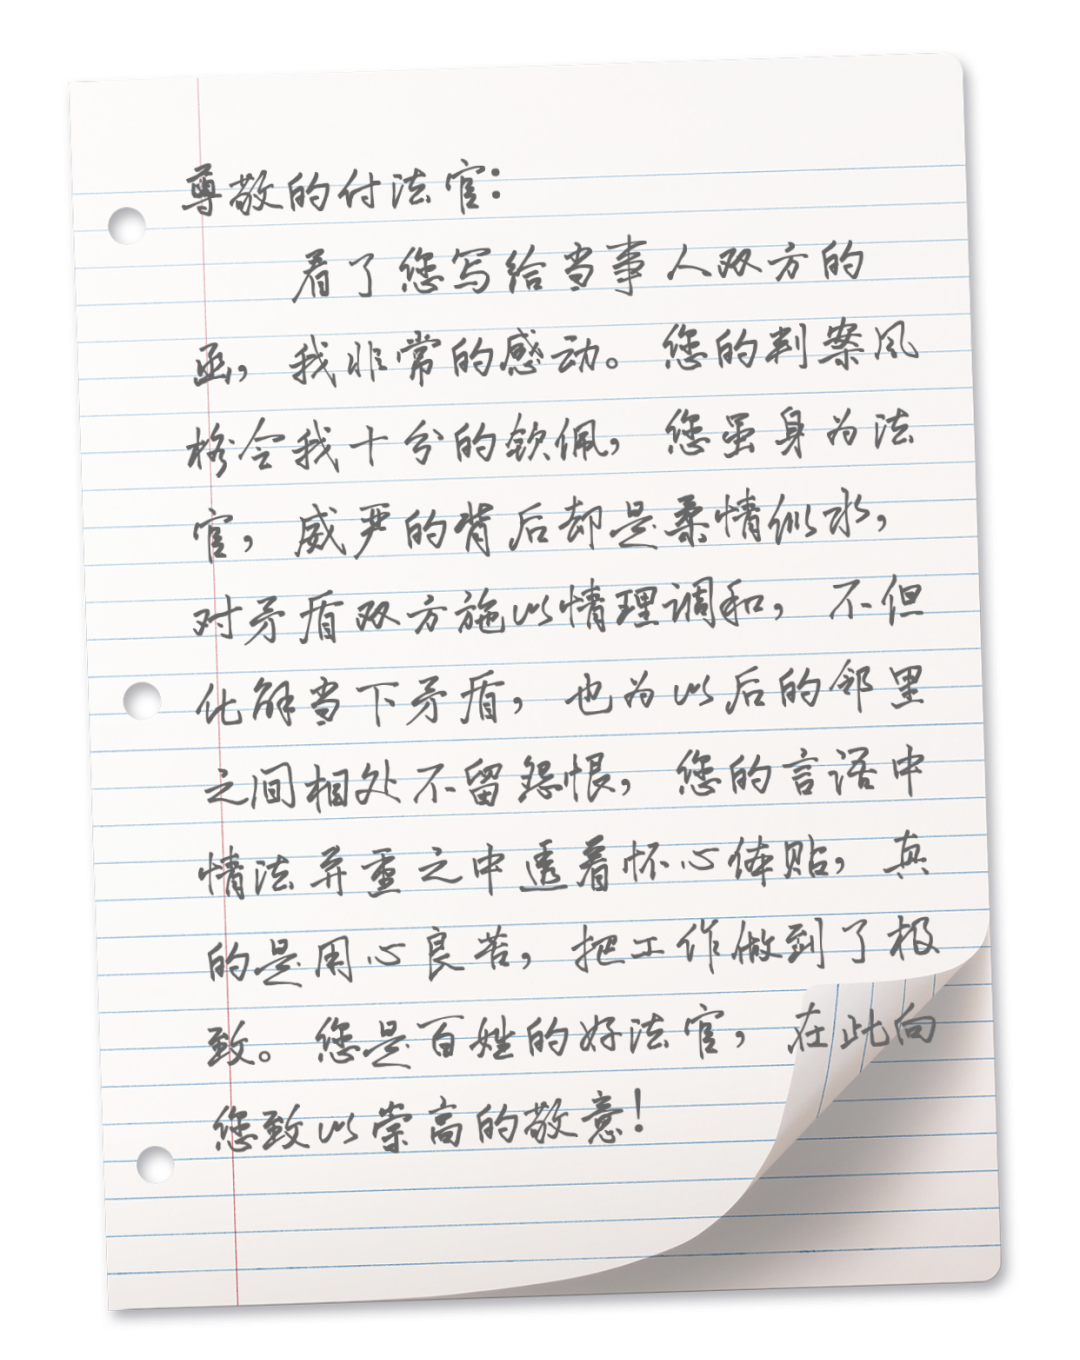 尊敬的付法官：
看了您写给当事人双方的
函，我非常的感动。您的判案风
格令我十分的钦佩，您虽身为法
官，威严的背后却是柔情似水，
对矛盾双方施以情理调和，不但
化解当下矛盾，也为以后的邻里
之间相处不留怨恨，您的言语中
情法并重之中透着怀心体贴，真
的是用心良苦，把工作做到了极
致。您是百姓的好法官，在此向
您致以崇高的敬意！